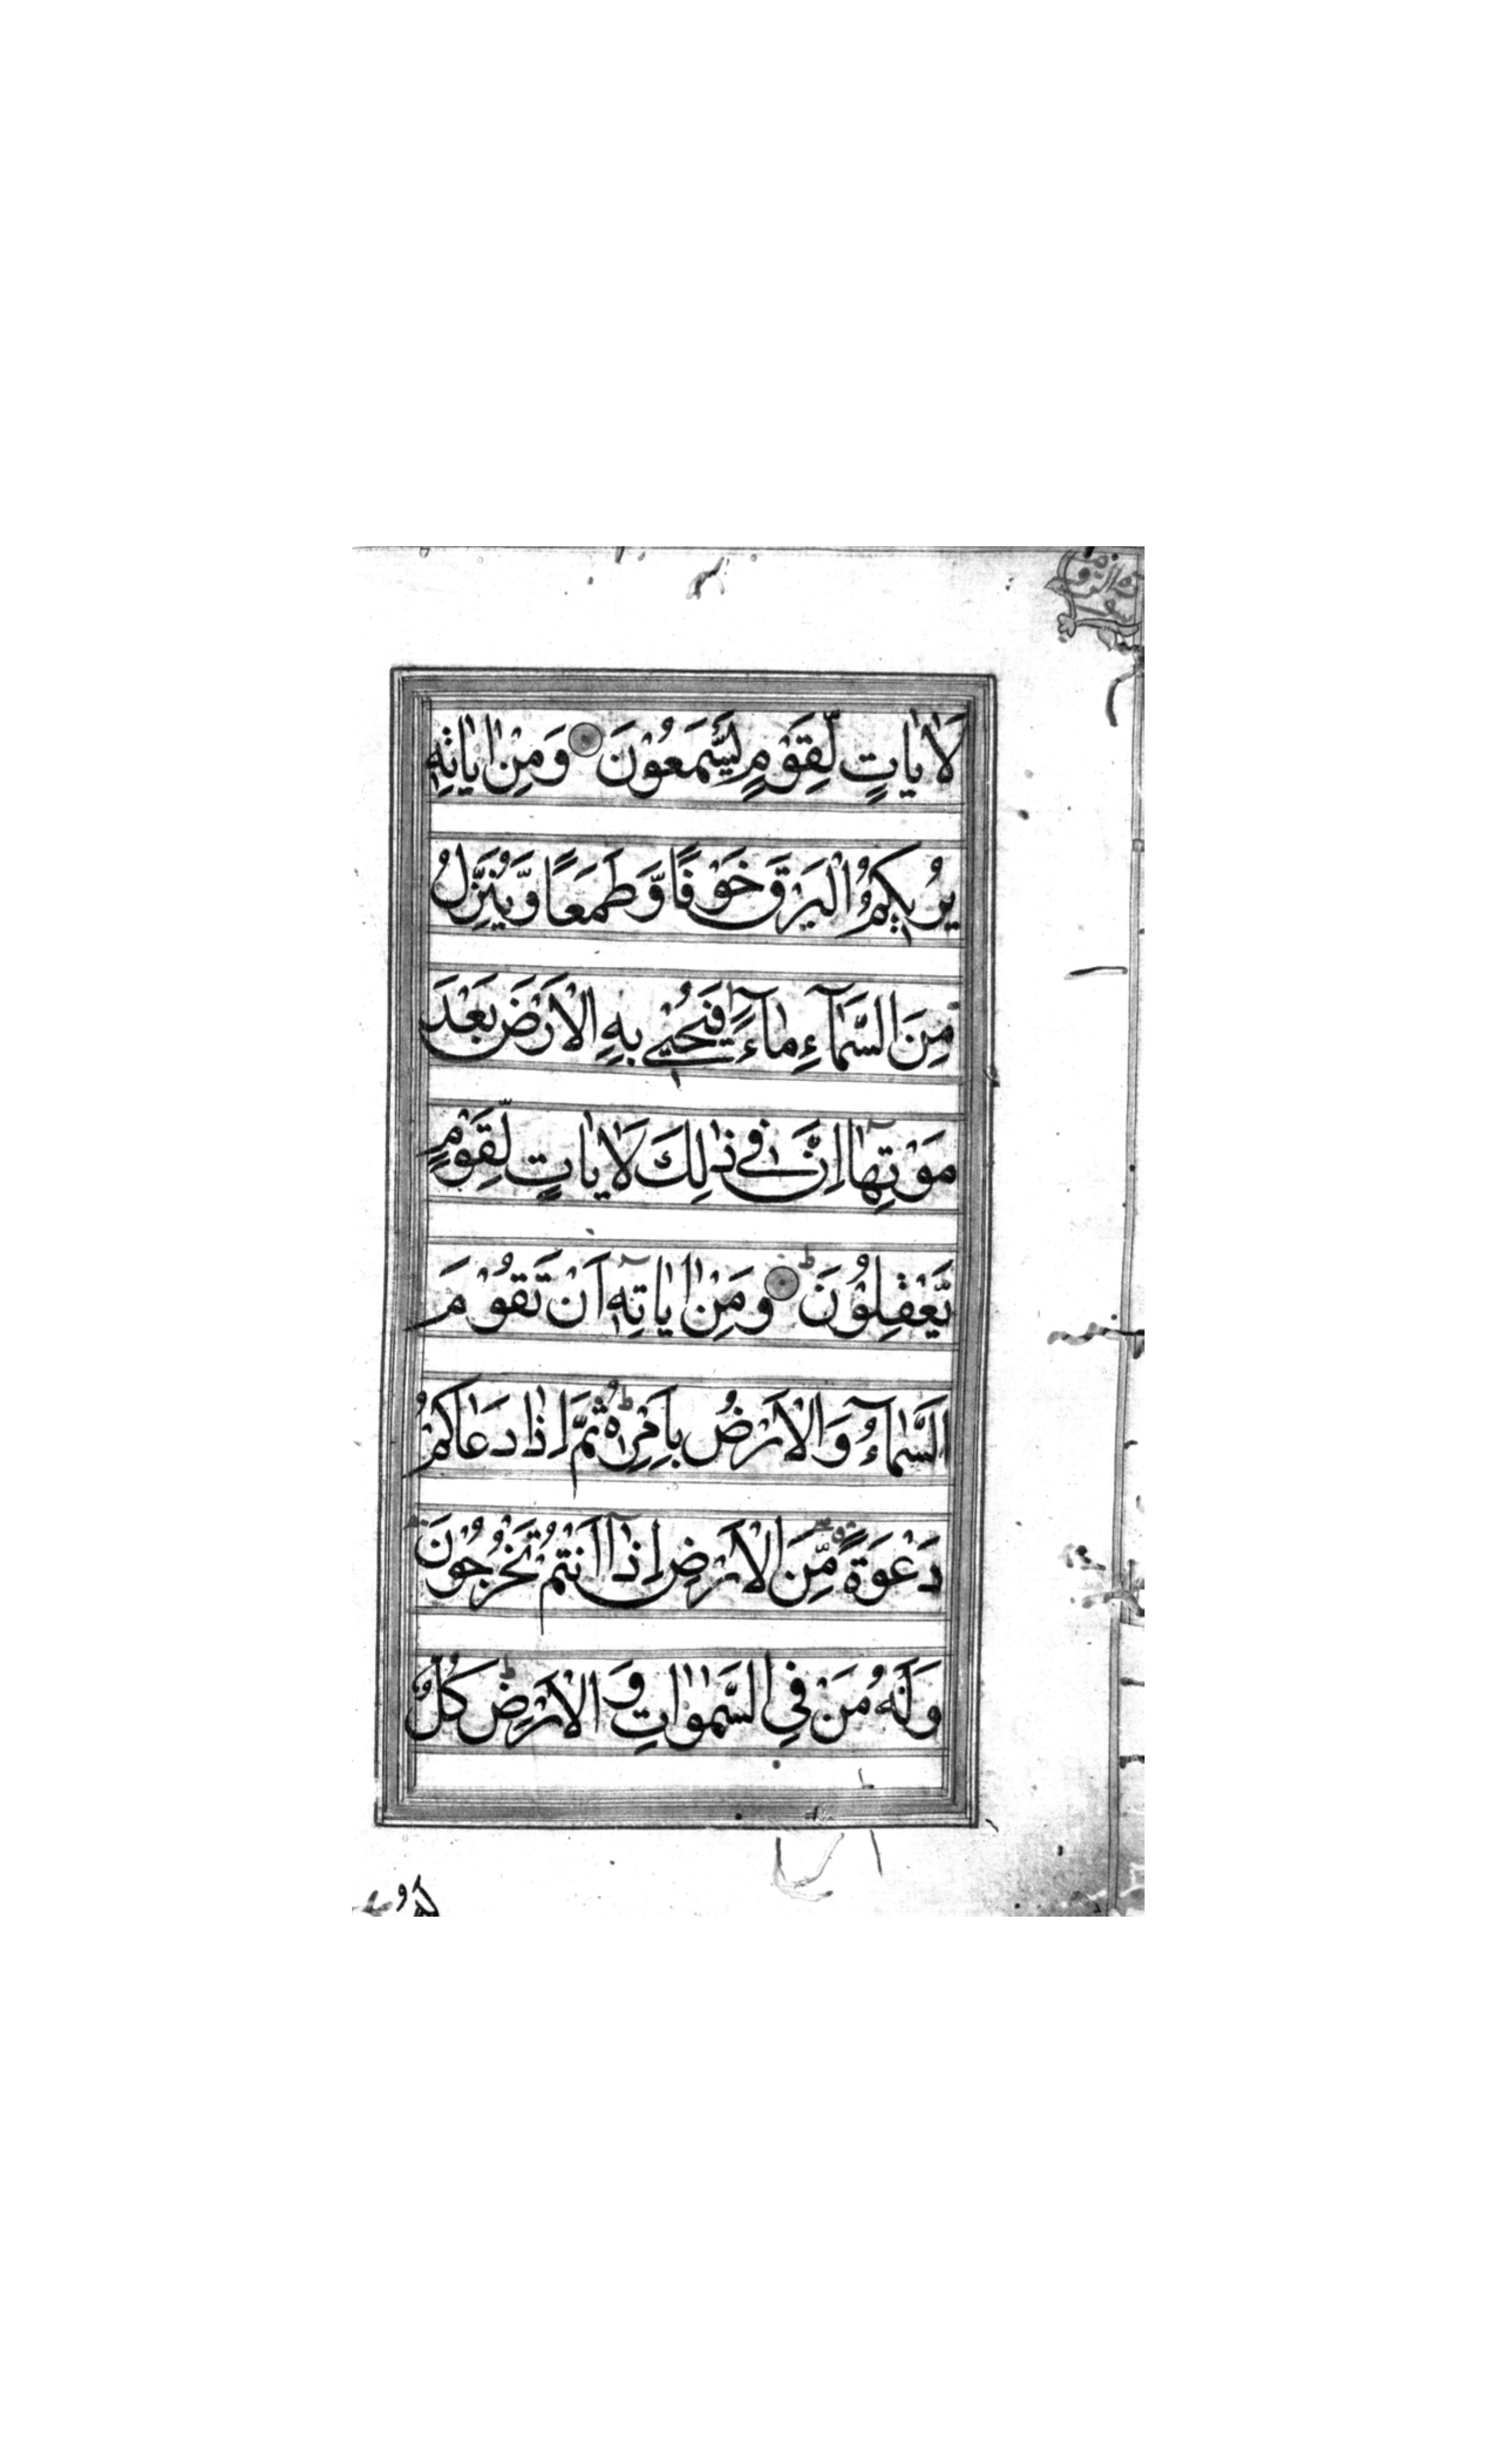 لَاٰيَاتٍ لِّقَوْمٍ يَّسْمَعُوْنَ وَمِنْ اٰيَاتِهٖ
يُرِيْكُمُ الْبَرْقَ خَوْفًا وَّطَمَعًا وَّيُنَزِّلُ
مِنَ السَّمَآءِ مَآءً فَيُحْيٖ بِهِ الْاَرْضَ بَعْدَ
مَوْتِهَا اِنَّ فِيْ ذٰلِكَ لَاٰيَاتٍ لِّقَوْمٍ
يَّعْقِلُوْنَ ط وَمِنْ اٰيَاتِهٖٓ اَنْ تَقُوْمَ
السَّمَآءُ وَالْاَرْضُ بِاَمْرِهٖ ط ثُمَّ اِذَا دَعَاكُمْ
دَعْوَةً مِّنَ الْاَرْضِ اِذَآ اَنْتُمْ تَخْرُجُوْنَ
وَلَهٗ مَنْ فِي السَّمٰوٰاتِ وَالْاَرْضِ ط كُلٌّ